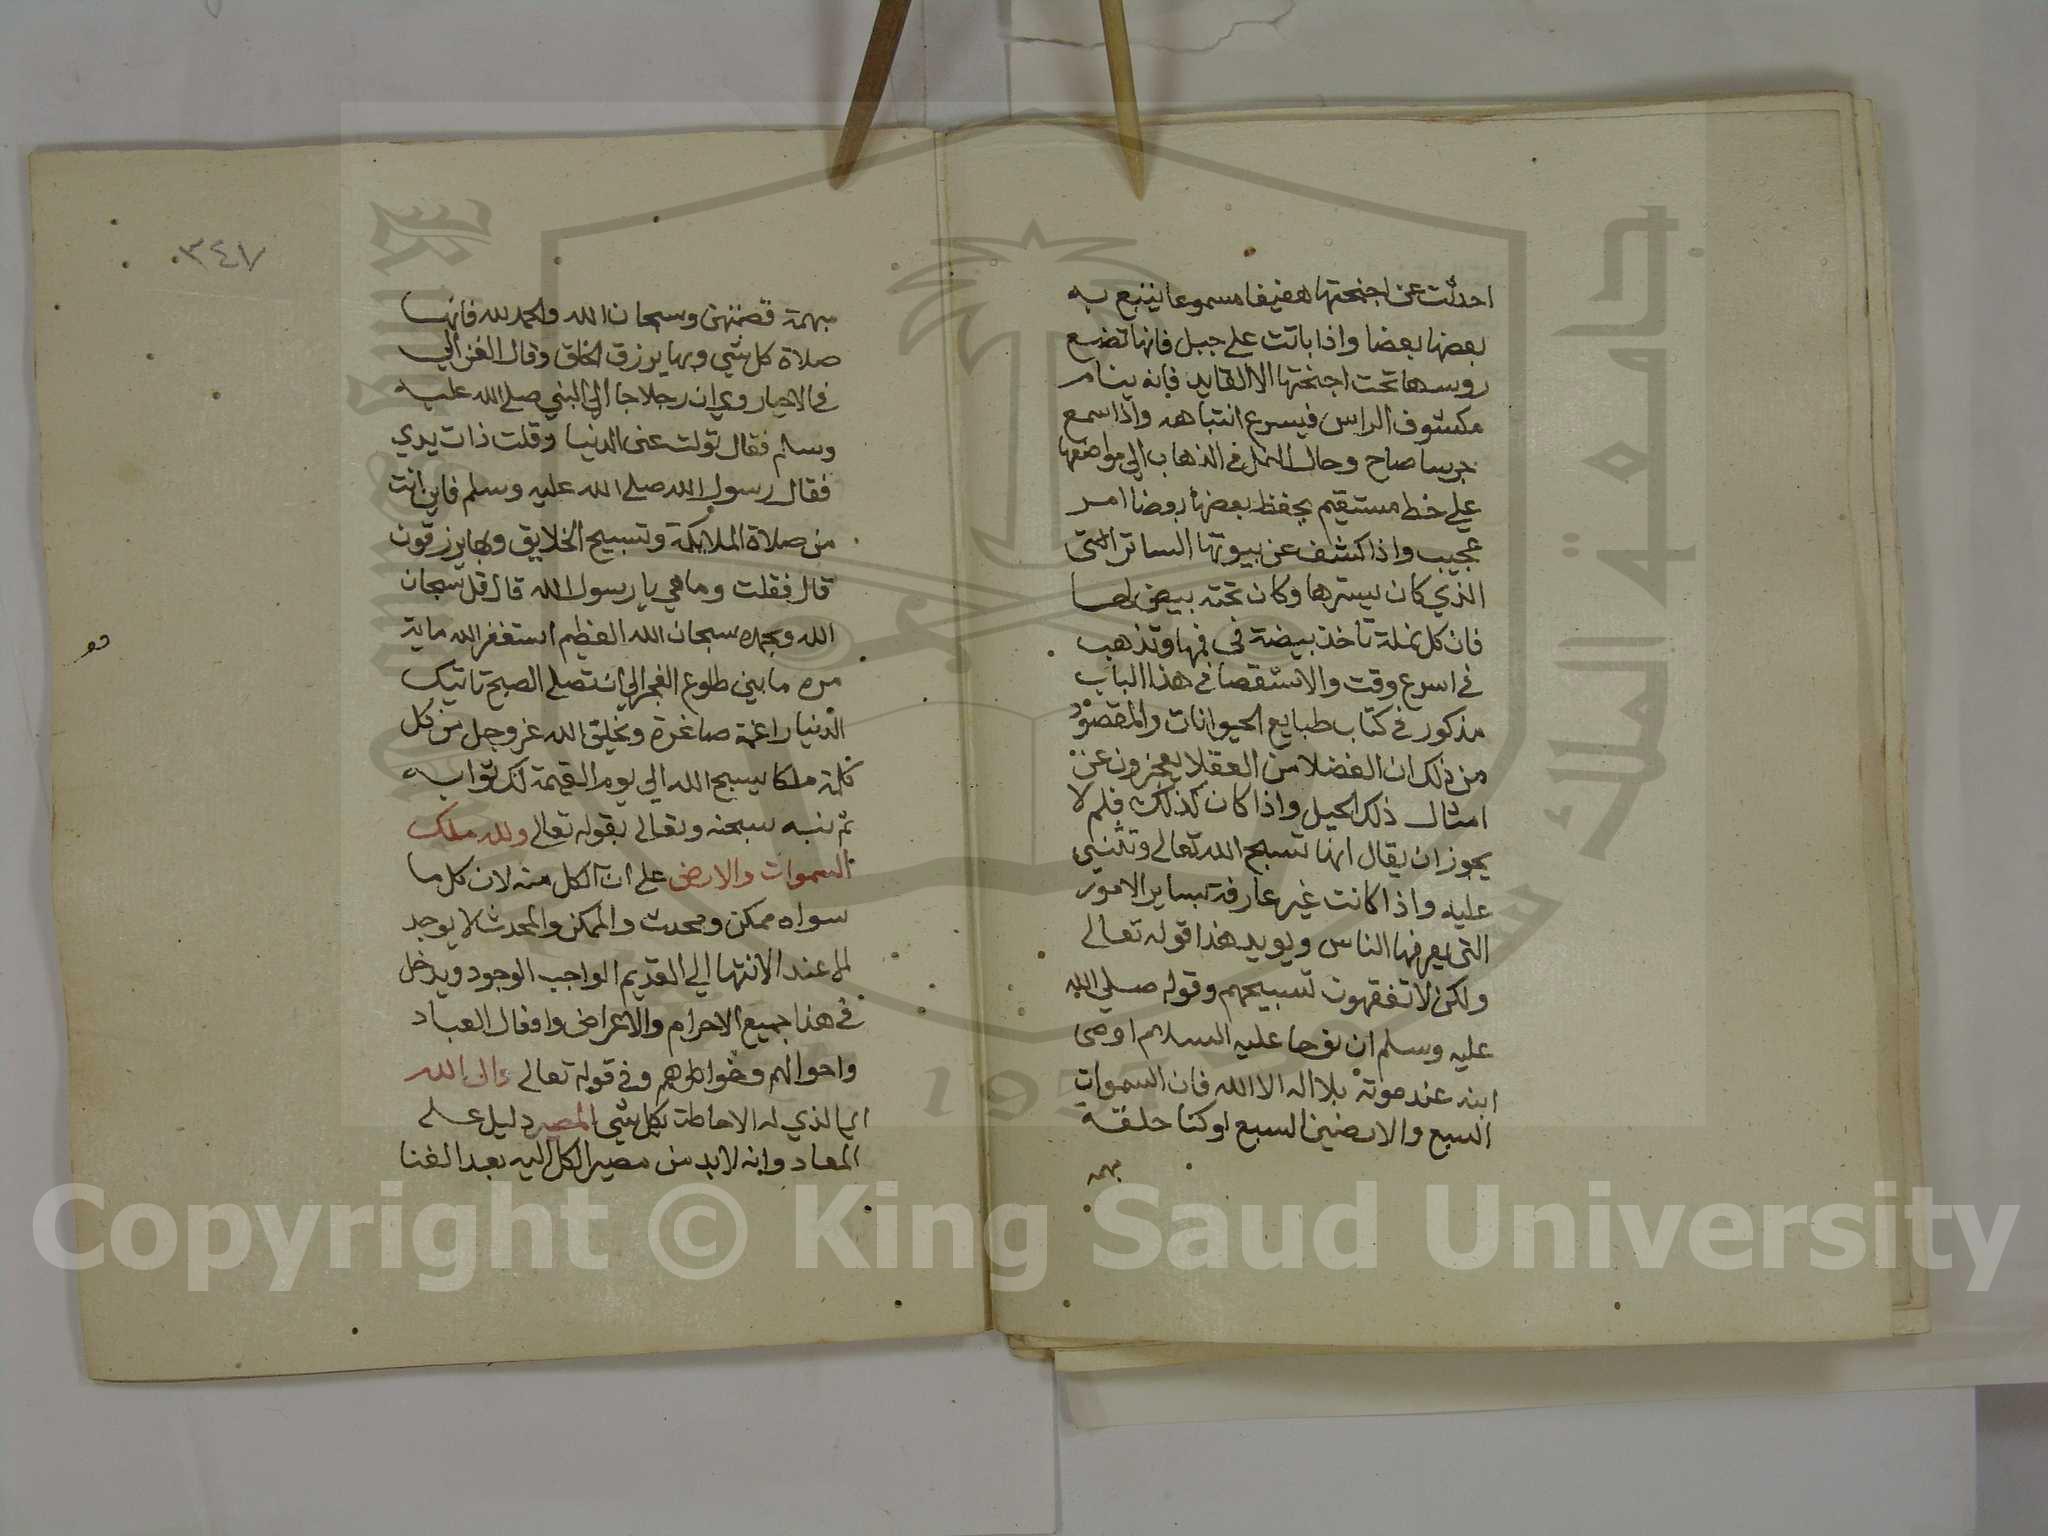 احدثت عن اجنحتها هفيفا مسموعا يتبع به
بعضها بعضا واذا باتت على جبل فانها تضع
روسها تحت اجنحتها الا القايد فانه ينام
مكشوف الراس فيسرع انتباهه واذا سمع
جرسا صاح وحال النمل في الذهاب الي مواضعها
علي خط مستقيم يحفظ بعضها بعضا امر
عجيب واذا كشف عن بيوتها الساتر التي
الذي كان يسترها وكان تحته بيض لها
فان كل نملة تأخذ بيضة في فمها وتذهب
في اسرع وقت والاستقصا في هذا الباب
مذكور في كتاب طبايع الحيوانات والمقصود
من ذلك ان الفضلا من العقلا يعجزون عن
امثال ذلك الحيل واذا كان كذلك فلم لا
يجوز ان يقال انها تسبح الله تعالي وتثني
عليه واذا كانت غير عارفة بساير الامور
التي يعرفها الناس ويويد هذا قوله تعالي
ولكن لا تفقهون تسبيحهم وقوله صلي الله
عليه وسلم ان نوحا عليه السلام اوصى
ابنه عند موته بلا اله الا الله فان السموات
السبع والارضين السبع لو كنا حلقة
مبهمة
٣٤٧
مبهمة قصمتهن وسبحان الله والحمد لله فانها
صلاة كل شي وبها يرزق الخلق وقال الغزالي
في الاحيا روي ان رجلا جا الي النبي صلي الله عليه
وسلم فقال تولت عني الدنيا وقلت ذات يدي
فقال رسول الله صلي الله عليه وسلم فاين انت
من صلاة الملايكة وتسبيح الخلايق وبها يرزقون
قال فقلت وما هي يا رسول الله قال قل سبحان
الله وبحمده سبحان الله العظيم استغفر الله ماية
مره ما بين طلوع الفجر الي ان تصلي الصبح تاتيك
الدنيا راغمة صاغرة ويخلق الله عز وجل من كل
كلمة ملكا يسبح الله الي يوم القيمة لك ثوابه
ثم نبه سبحنه وتعالي بقوله تعالي ولله ملك
السموات والارض علي ان الكل منه لان كل ما
سواه ممكن ومحدث والممكن والمحدث لا يوجد
الا عند الانتها الي القديم الواجب الوجود ويدخل
في هذا جميع الاجرام والاعراض وافعال العباد
واحوالهم وخواطرهم وفي قوله تعالي والي الله
اي الذي له الاحاطة بكل شي المصير دليل علي
المعاد وانه لابد من مصير الكل اليه بعد الفنا
جامعة الملك سعود
1957
Copyright © King Saud University